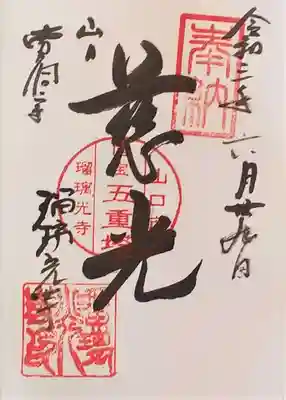 奉納
令和三年六月廿九日
慈光
山口
国宝五重塔
瑠璃光寺
山口
瑠璃光寺